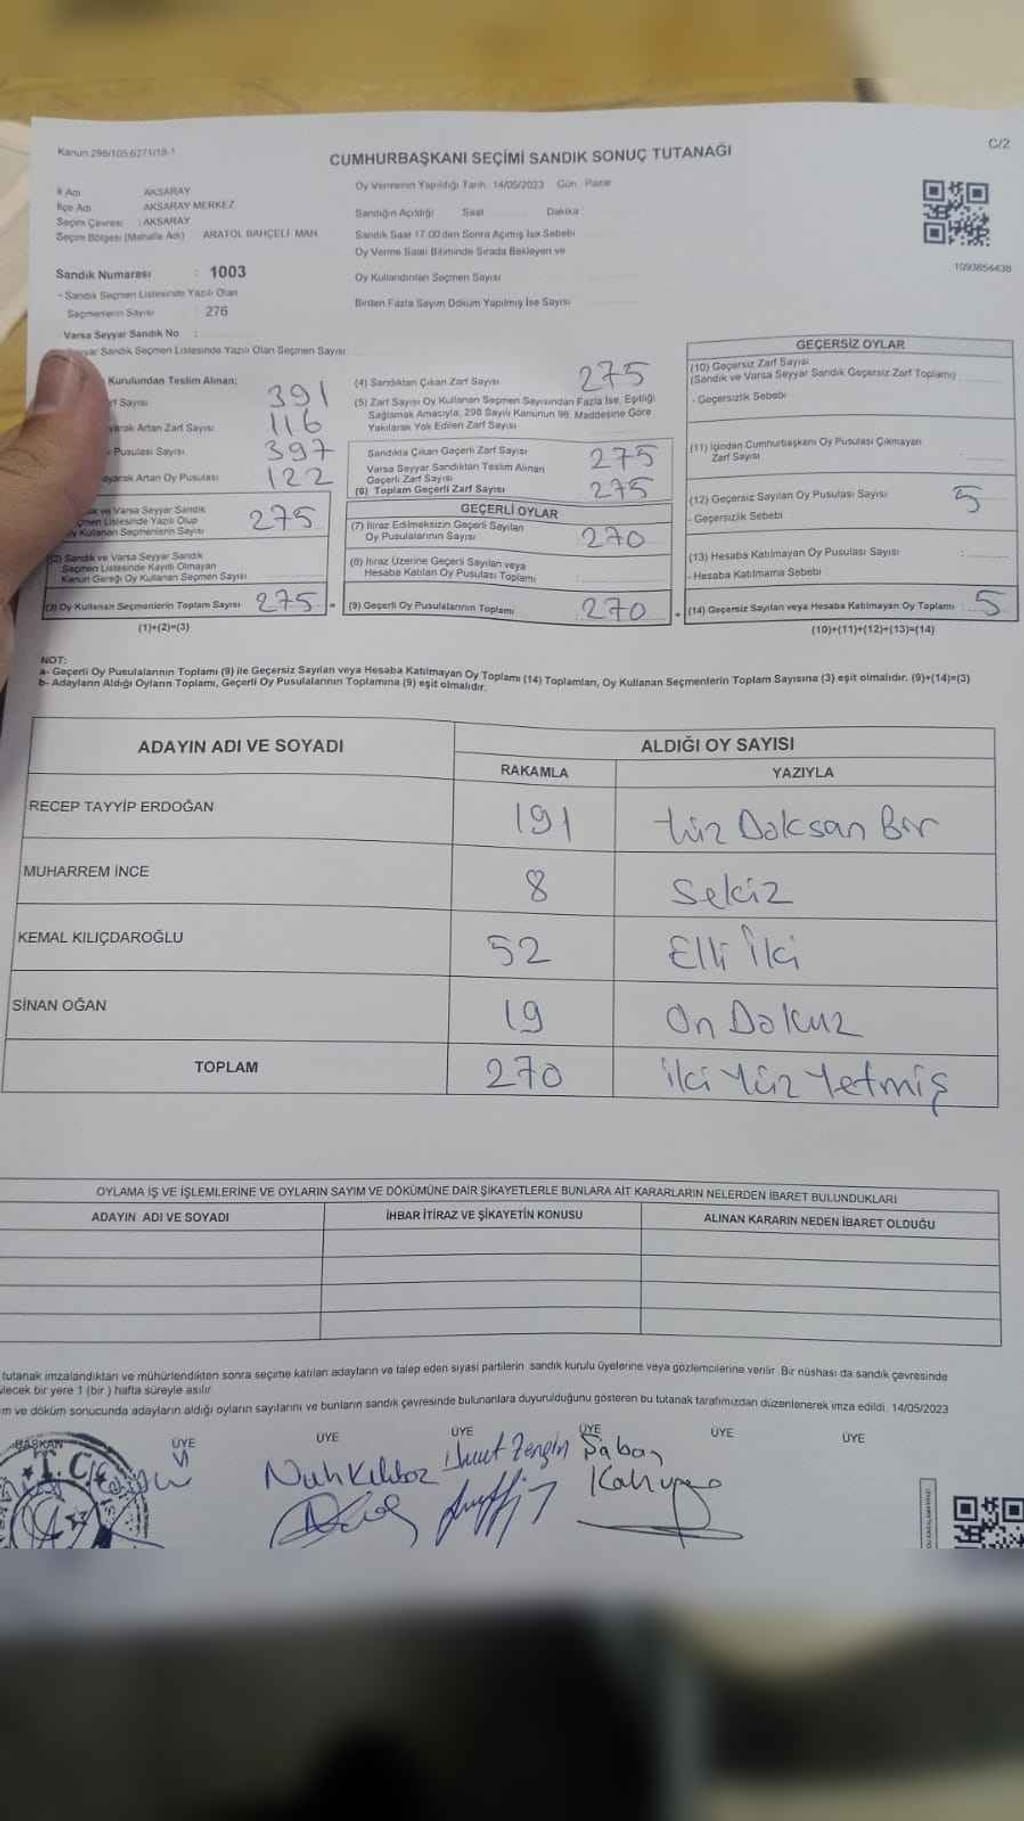 Kanun 298/105 6271/18-1
C/2
CUMHURBAŞKANI SEÇİMİ SANDIK SONUÇ TUTANAĞI
İl Adı AKSARAY
İlçe Adı AKSARAY MERKEZ
Seçim Çevresi : AKSARAY
Seçim Bölgesi (Mahalle Adı) ARATOL BAHÇELİ MAH.
Sandık Numarası : 1003
- Sandık Seçmen Listesinde Yazılı Olan
Seçmenlerin Sayısı : 276
Varsa Seyyar Sandık No :
Sandık Seçmen Listesinde Yazılı Olan Seçmen Sayısı
Oy Vermenin Yapıldığı Tarih: 14/05/2023 Gün : Pazar
Sandığın Açıldığı Saat Dakika
Sandık Saat 17.00'den Sonra Açılmış İse Sebebi
Oy Verme Saati Bitiminde Sırada Bekleyen ve
Oy Kullandırılan Seçmen Sayısı
Birden Fazla Sayım Döküm Yapılmış İse Sayısı
1093854438
Kurulundan Teslim Alınan;
Sayısı 391
Artan Zarf Sayısı 116
Pusulası Sayısı 397
Artan Oy Pusulası 122
ve Varsa Seyyar Sandık
Listesinde Yazılı Olup
Oy Kullanan Seçmenlerin Sayısı 275
(2) Sandık ve Varsa Seyyar Sandık
Seçmen Listesinde Kayıtlı Olmayan
Kanun Gereği Oy Kullanan Seçmen Sayısı
(3) Oy Kullanan Seçmenlerin Toplam Sayısı 275
(1)+(2)=(3)
(4) Sandıktan Çıkan Zarf Sayısı 275
(5) Zarf Sayısı Oy Kullanan Seçmen Sayısından Fazla İse, Eşitliği
Sağlamak Amacıyla, 298 Sayılı Kanunun 98. Maddesine Göre
Yakılarak Yok Edilen Zarf Sayısı
Sandıkta Çıkan Geçerli Zarf Sayısı 275
Varsa Seyyar Sandıktan Teslim Alınan
Geçerli Zarf Sayısı
(6) Toplam Geçerli Zarf Sayısı 275
GEÇERLİ OYLAR
(7) İtiraz Edilmeksizin Geçerli Sayılan
Oy Pusulalarının Sayısı 270
(8) İtiraz Üzerine Geçerli Sayılan veya
Hesaba Katılan Oy Pusulası Toplamı
(9) Geçerli Oy Pusulalarının Toplamı 270
GEÇERSİZ OYLAR
(10) Geçersiz Zarf Sayısı
(Sandık ve Varsa Seyyar Sandık Geçersiz Zarf Toplamı)
- Geçersizlik Sebebi
(11) İçinden Cumhurbaşkanı Oy Pusulası Çıkmayan
Zarf Sayısı
(12) Geçersiz Sayılan Oy Pusulası Sayısı 5
- Geçersizlik Sebebi
(13) Hesaba Katılmayan Oy Pusulası Sayısı
- Hesaba Katılmama Sebebi
(14) Geçersiz Sayılan veya Hesaba Katılmayan Oy Toplamı 5
(10)+(11)+(12)+(13)=(14)
NOT:
a- Geçerli Oy Pusulalarının Toplamı (9) ile Geçersiz Sayılan veya Hesaba Katılmayan Oy Toplamı (14) Toplamları, Oy Kullanan Seçmenlerin Toplam Sayısına (3) eşit olmalıdır. (9)+(14)=(3)
b- Adayların Aldığı Oyların Toplamı, Geçerli Oy Pusulalarının Toplamına (9) eşit olmalıdır.
ADAYIN ADI VE SOYADI ALDIĞI OY SAYISI
RAKAMLA YAZIYLA
RECEP TAYYİP ERDOĞAN 191 Yüz Doksan Bir
MUHARREM İNCE 8 Sekiz
KEMAL KILIÇDAROĞLU 52 Elli İki
SİNAN OĞAN 19 On Dokuz
TOPLAM 270 iki Yüz Yetmiş
OYLAMA İŞ VE İŞLEMLERİNE VE OYLARIN SAYIM VE DÖKÜMÜNE DAİR ŞİKAYETLERLE BUNLARA AİT KARARLARIN NELERDEN İBARET BULUNDUKLARI
ADAYIN ADI VE SOYADI İHBAR İTİRAZ VE ŞİKAYETİN KONUSU ALINAN KARARIN NEDEN İBARET OLDUĞU
tutanak imzalandıktan ve mühürlendikten sonra seçime katılan adayların ve talep eden siyasi partilerin sandık kurulu üyelerine veya gözlemcilerine verilir. Bir nüshası da sandık çevresinde
bir yere 1 (bir ) hafta süreyle asılır
ve döküm sonucunda adayların aldığı oyların sayılarını ve bunların sandık çevresinde bulunanlara duyurulduğunu gösteren bu tutanak tarafımızdan düzenlenerek imza edildi. 14/05/2023
BAŞKAN ÜYE ÜYE ÜYE ÜYE ÜYE ÜYE
T.C.
Nuh Kılıboz Umut Zengin Şaban